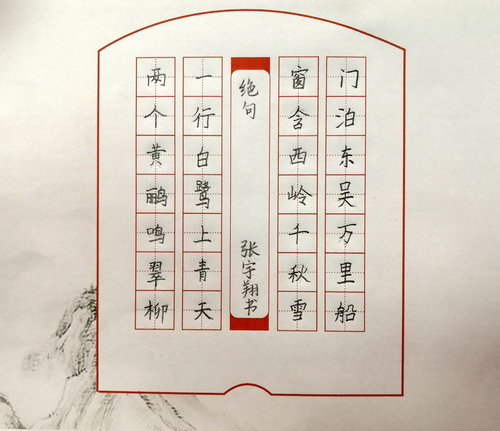 两个黄鹂鸣翠柳
一行白鹭上青天
绝句
张宇翔书
窗含西岭千秋雪
门泊东吴万里船